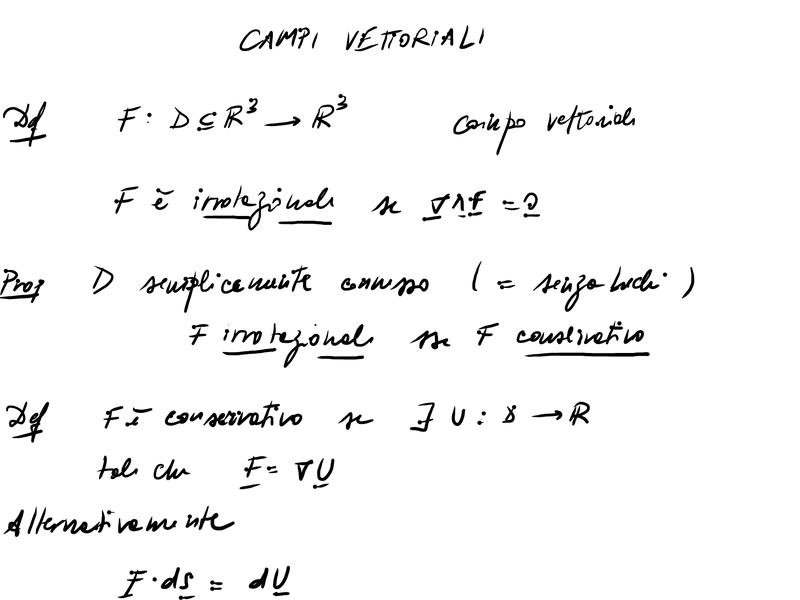 CAMPI VETTORIALI
Def F: D ⊆ R³ → R³ campo vettoriale
F è irrotazionale se ∇∧F = 0
Prop D semplicemente connesso ( = senza buchi )
F irrotazionale sse F conservativo
Def F è conservativo se ∃ U : D → R
tale che F = ∇U
Alternativamente
F · ds = dU